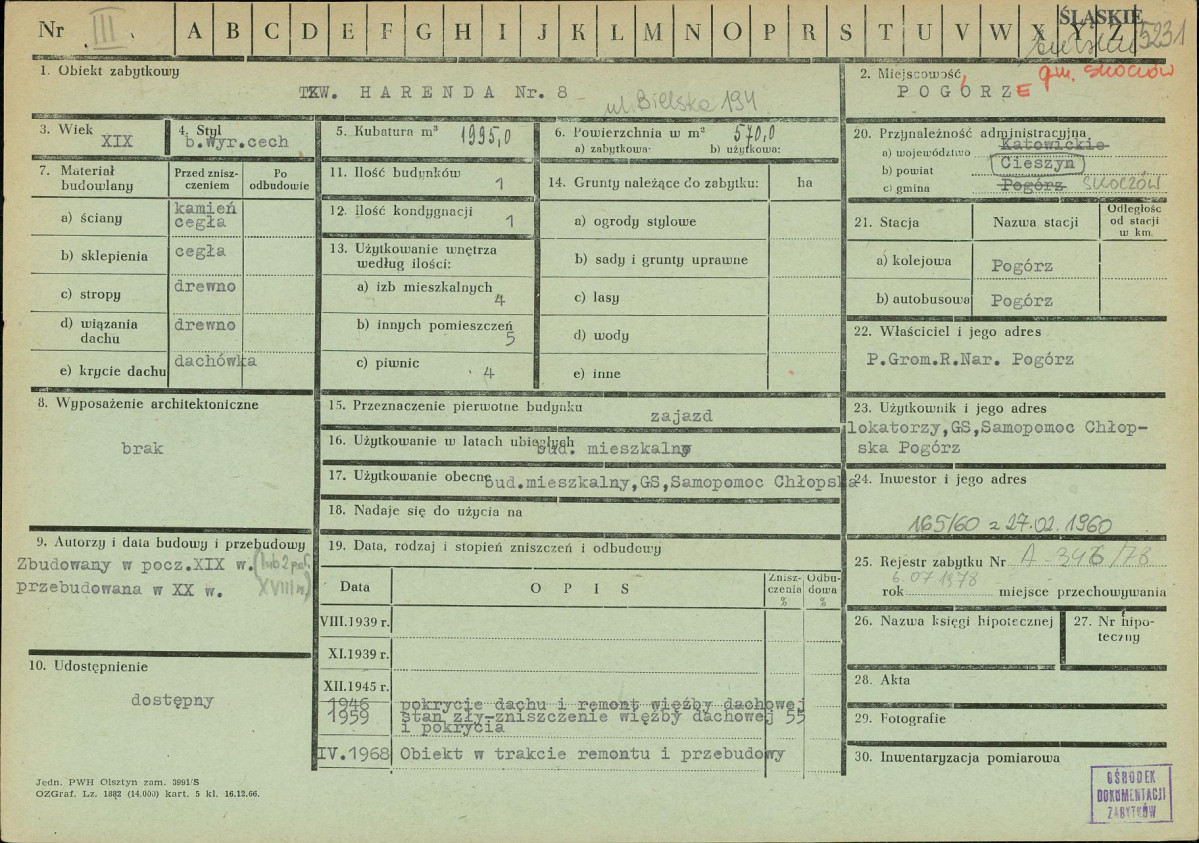 Nr III A B C D E F G H I J K L M N O P R S T U V W X Y Z
ŚLĄSKIE
bielskie 5231
1. Obiekt zabytkowy
TZW. HARENDA Nr. 8
ul. Bielska 194
2. Miejscowość
gm. SKOCZÓW
POGÓRZE
3. Wiek
XIX
4. Styl
b.wyr.cech
5. Kubatura m³ 1995,0
6. Powierzchnia w m² 570,0
a) zabytkowa: b) użytkowa:
20. Przynależność administracyjna
a) województwo Katowickie
b) powiat Cieszyn
c) gmina Pogórz SKOCZÓW
7. Materiał budowlany
Przed znisz-
czeniem
Po
odbudowie
a) ściany kamień
cegła
b) sklepienia cegła
c) stropy drewno
d) wiązania
dachu drewno
e) krycie dachu dachówka
11. Ilość budynków 1
12. Ilość kondygnacji 1
13. Użytkowanie wnętrza
według ilości:
a) izb mieszkalnych 4
b) innych pomieszczeń 5
c) piwnic 4
14. Grunty należące do zabytku: ha
a) ogrody stylowe
b) sady i grunty uprawne
c) lasy
d) wody
e) inne
21. Stacja Nazwa stacji Odległość
od stacji
w km.
a) kolejowa Pogórz
b) autobusowa Pogórz
22. Właściciel i jego adres
P.Grom.R.Nar. Pogórz
8. Wyposażenie architektoniczne
brak
15. Przeznaczenie pierwotne budynku zajazd
16. Użytkowanie w latach ubiegłych bud. mieszkalny
17. Użytkowanie obecne bud.mieszkalny,GS,Samopomoc Chłopska
18. Nadaje się do użycia na
23. Użytkownik i jego adres
lokatorzy,GS,Samopomoc Chłop-
ska Pogórz
24. Inwestor i jego adres
165/60 z 27.02.1960
9. Autorzy i data budowy i przebudowy
Zbudowany w pocz.XIX w. (lub 2 poł.
przebudowana w XX w. XVIII w)
19. Data, rodzaj i stopień zniszczeń i odbudowy
Data OPIS Znisz-
czenia
%
Odbu-
dowa
%
VIII.1939 r.
XI.1939 r.
XII.1945 r.
1946 pokrycie dachu i remont więźby dachowej
1959 stan zły-zniszczenie więźby dachowej 55
i pokrycia
IV.1968 Obiekt w trakcie remontu i przebudowy
25. Rejestr zabytku Nr A-346/78
6.07 1978
rok miejsce przechowywania
26. Nazwa księgi hipotecznej
27. Nr hipo-
teczny
28. Akta
29. Fotografie
30. Inwentaryzacja pomiarowa
10. Udostępnienie
dostępny
Jedn. PWH Olsztyn zam. 3991/S
OZGraf. Lz. 1882 (14.000) kart. 5 kl. 16.12.66.
OŚRODEK
DOKUMENTACJI
ZABYTKÓW